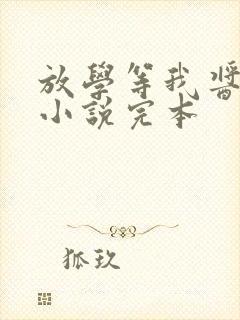 放學等我醬
小說完本
狐玖